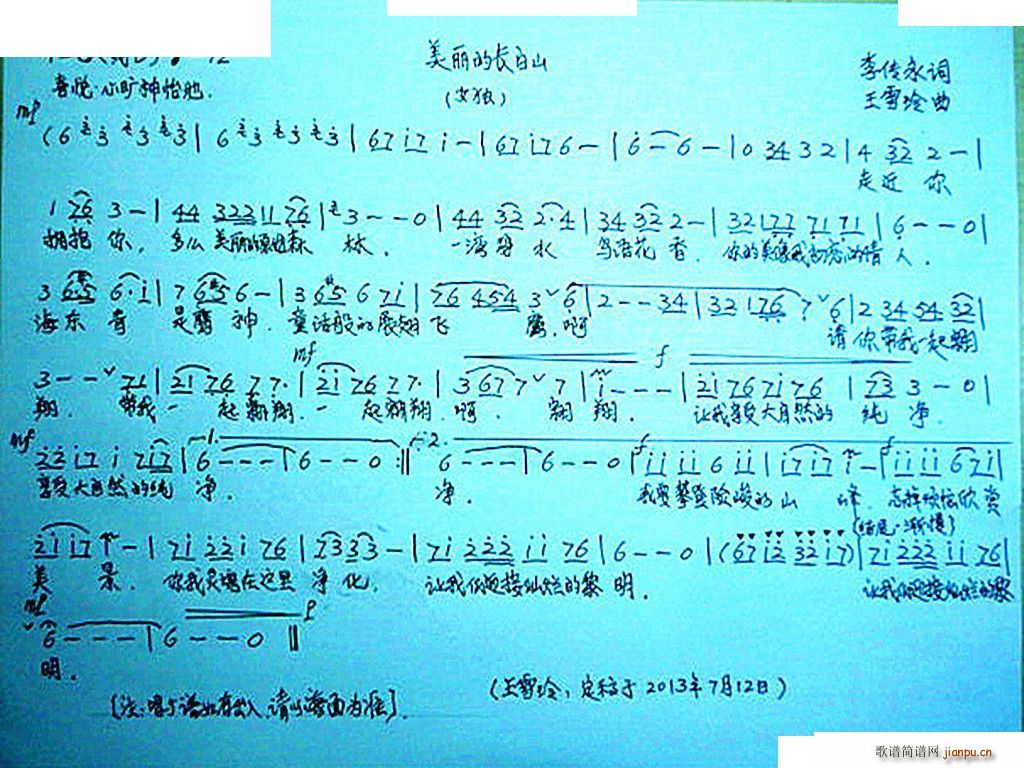 美丽的长白山
(女独)
李传永词
王雪玲曲
喜悦·心旷神怡地.
mp
(6 3 3 3 3 | 6 3 3 3 3 | 67 i7 i - | 67 i7 6 - | 6 - 6 - | 0 34 3 2 | 4 32 2 - |
走近 你
1 76 3 - | 44 32211 76 | 3 - - 0 | 44 32 2·4 | 34 32 2 - | 32 177 71 71 | 6 - - 0 |
拥抱 你. 多么 美丽的 森 林. 一湾碧 水 鸟语花 香. 你的美像我初恋的情 人.
3 6·5 6·i | 7 6·5 6 - | 3 6·5 6 7i | 76 454 3 ˇ 6 | 2 - - 34 | 32 176 7 ˇ 6 | 2 34 54 32 |
海东 青 是鹰 神. 童话般的展翅飞 鹰. 啊 请你带我一起翱
mf f
3 - - ˇ 71 | 2i 76 7 7· | 2i 76 7 7· | 3 67 7 ˇ 7 | i - - - | 2i 76 7i 76 | 73 3 - 0 |
翔. 带我一 起翱翔. 一 起翱翔. 啊. 翱 翔. 让我享受大自然的 纯 净.
mf 1. 2. f f
22 i7 i 7i7 | 6 - - - | 6 - - 0 :|| 6 - - - | 6 - - 0 | ii ii 6 ii | i7 i7 i - | ii ii 6 7i |
享受大自然的纯 净. 净. 我要攀登险峻的山 峰. 忘掉烦恼欣赏
(结尾·渐慢)
2i i7 i - | 7i 22i 76 | 73 33 - | 7i 222 ii 76 | 6 - - 0 | (67 i2 32 i7) | 7i 222 ii 76 |
美 景. 你我灵魂在这里 净 化. 让我们迎接灿烂的黎 明. 让我们迎接灿烂的黎
mp p
ˇ 6 - - - | 6 - - 0 ||
明.
[注:唱与谱如有出入,请以谱面为准].
(王雪玲,定稿于2013年7月12日)
歌谱简谱网 jianpu.cn